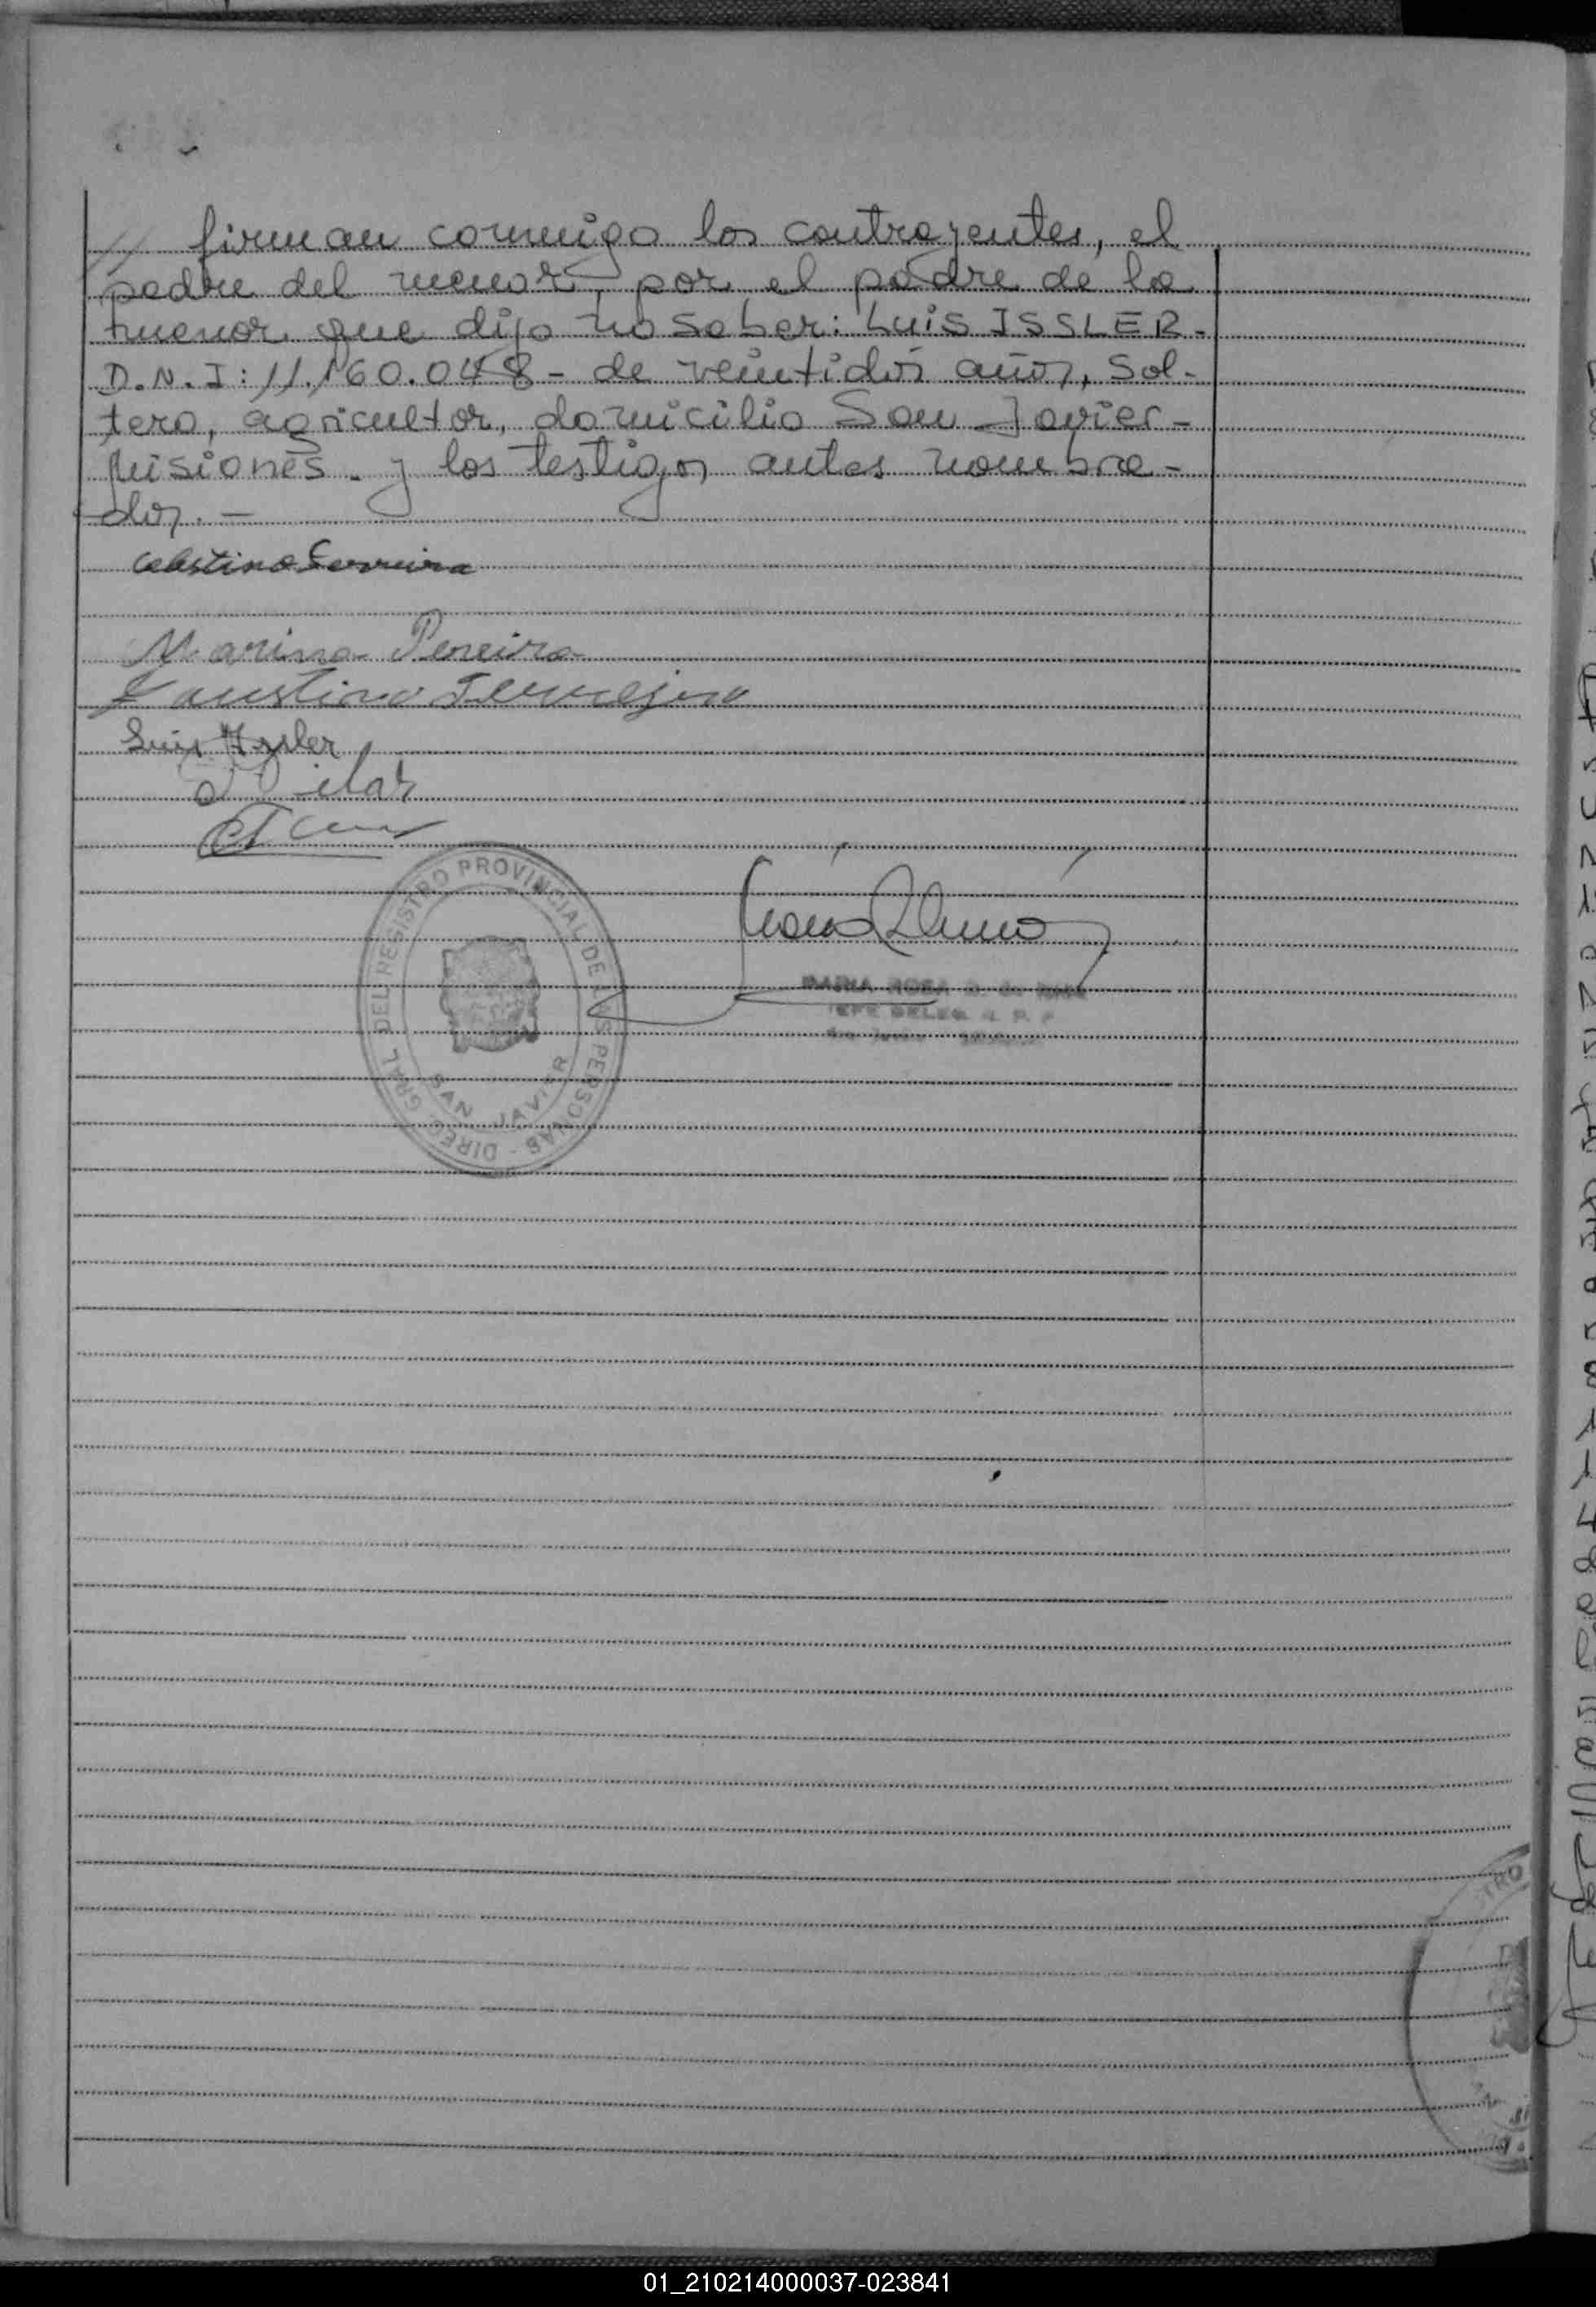 // firman conmigo los contrayentes, el
padre del menor, por el padre de la
menor que dijo no saber: LUIS ISSLER-
D.N.I: 11.160.048- de veintidós años, sol-
tero, agricultor, domicilio San Javier-
Misiones. y los testigos antes nombra-
dos.-
Celestino Ferreira
Marina Pereira
Faustino
Luis Issler
DIREC. GRAL. DEL REGISTRO PROVINCIAL DE LAS PERSONAS -
SAN JAVIER
MARIA ROSA
JEFE DELEG. R. P. P.
TRO
01_210214000037-023841